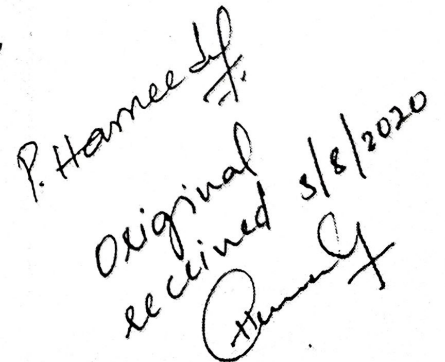 P. Hameed
Original
received 3/8/2020